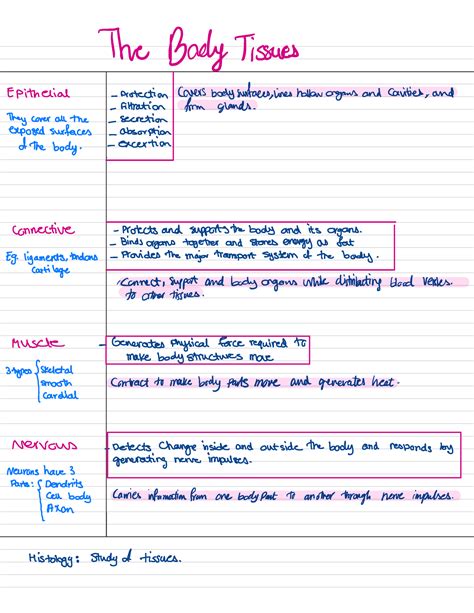 The Body Tissues
Epithelial
They cover all the
exposed surfaces
of the body.
- Protection
- filtration
- Secretion
- absorption
- excertion
Covers body surfaces, lines hollow organs and cavities, and
form glands.
Connective
Eg. ligaments, tendons
cartilage
- Protects and supports the body and its organs.
- Binds organs together and stores energy as fat
- Provides the major transport system of the body.
Connect, support and body organs while distributing blood vessles
to other tissues.
Muscle
3 types Skeletal
smooth
Cardial
- Generates physical force required to
make body structures move
Contract to make body parts move and generates heat.
Nervous
Neurons have 3
Parts: Dendrits
Cell body
Axon
- Detects Change inside and outside the body and responds by
generating nerve impulses.
Carries information from one body part to another through nerve impulses.
Histology: Study of tissues.